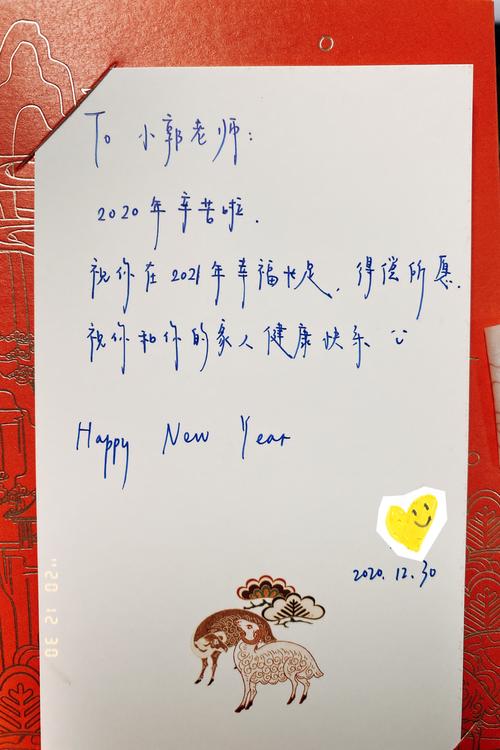 To 小郭老师：
2020年辛苦啦.
祝你在2021年幸福快足，得偿所愿.
祝你和你的家人健康快乐
Happy New Year
2020.12.30